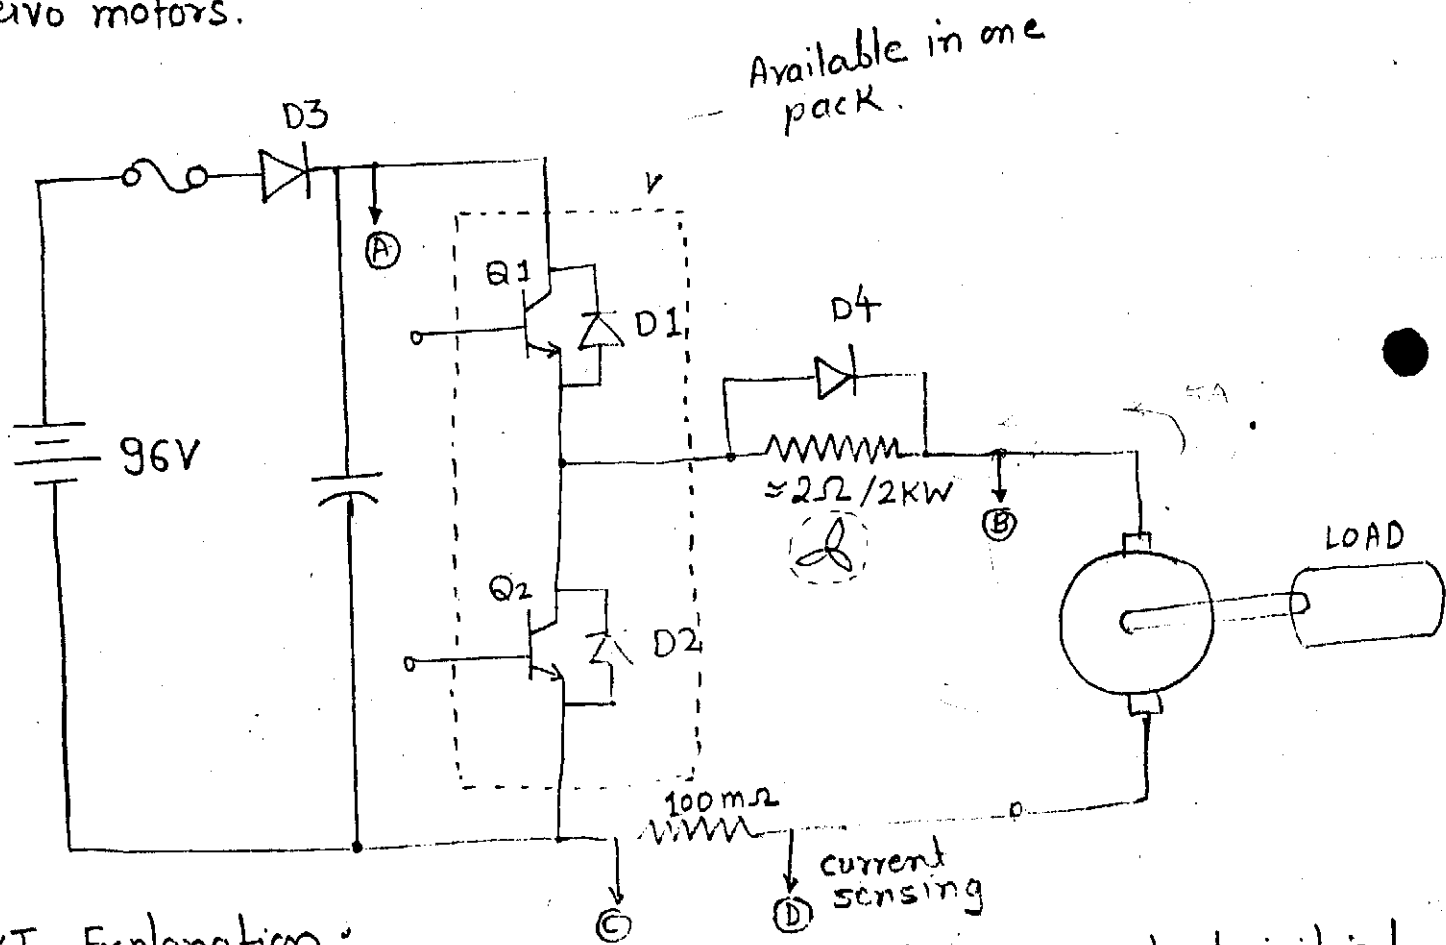 motors.
Available in one
pack.
D3
A
Q1
D1
D4
96V
≈2Ω/2KW
B
LOAD
Q2
D2
100mΩ
current
sensing
C
D
Explanation: